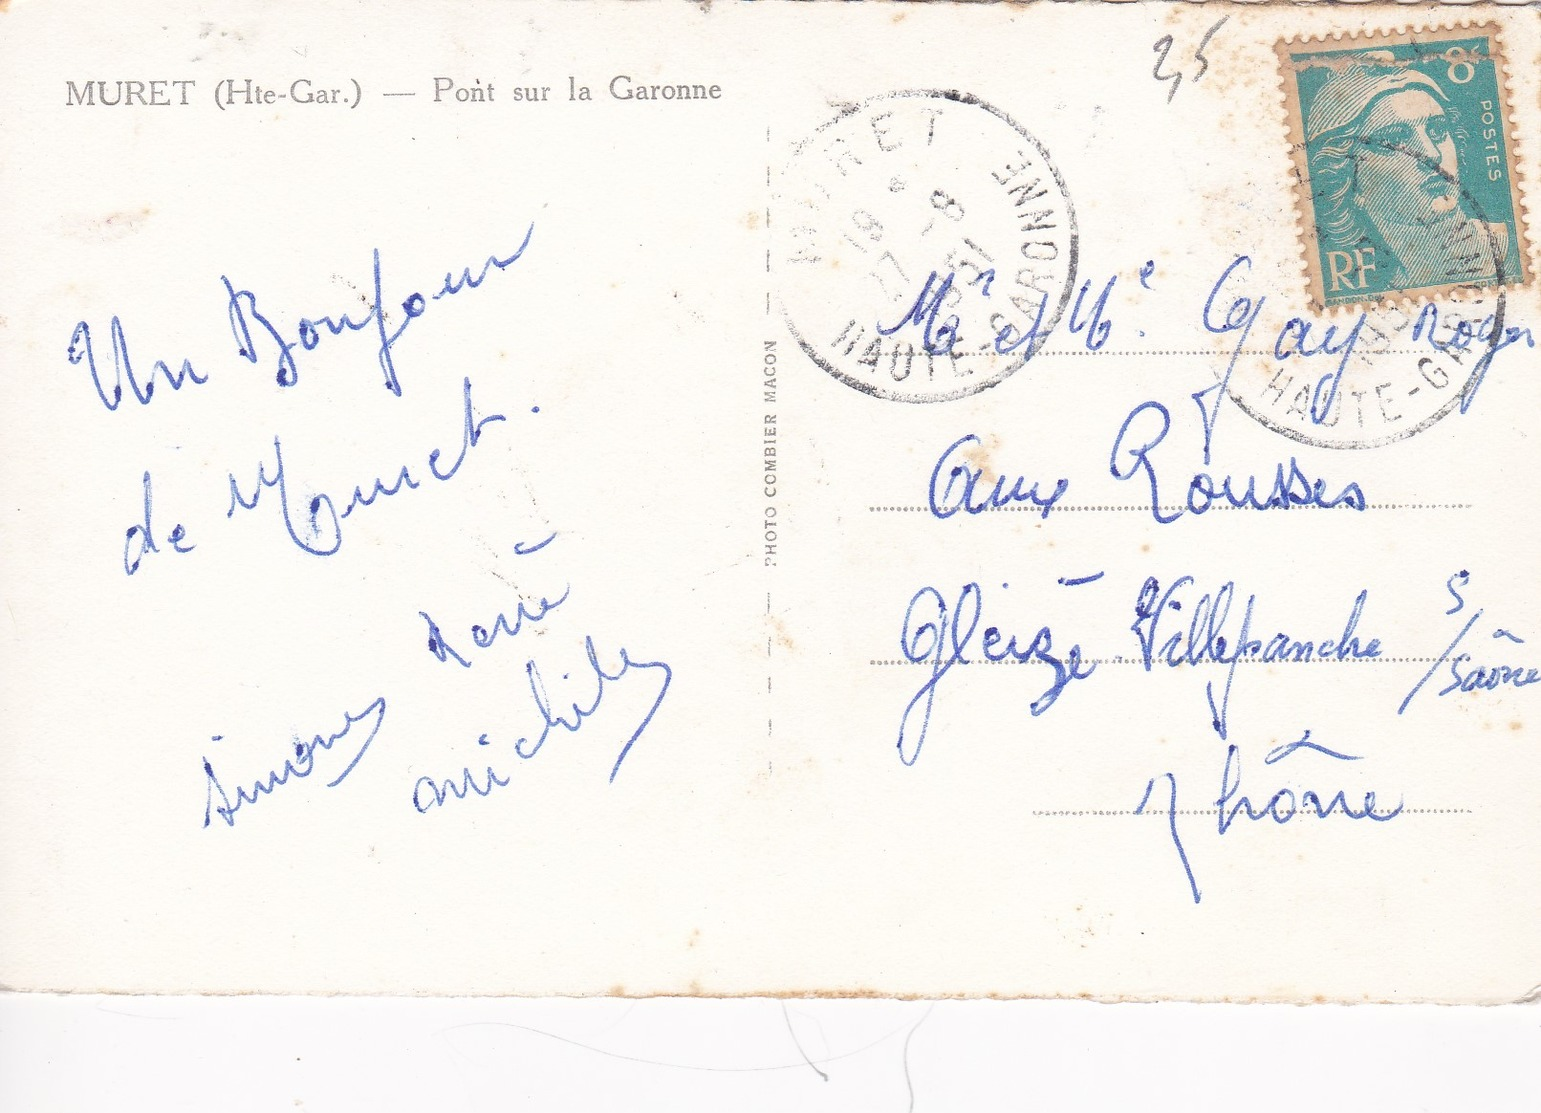 MURET (Hte-Gar.) — Pont sur la Garonne
25
8F
POSTES
RF
MURET
HAUTE-GARONNE
18
27 -8
1951
HAUTE-GARONNE
PHOTO COMBIER MACON
Un Bonjour
de Muret.
René
Simone
Michile
Mr et Me. Gay Roger
Aux Rousses
Gleizé Villefranche s/Saône
Rhône